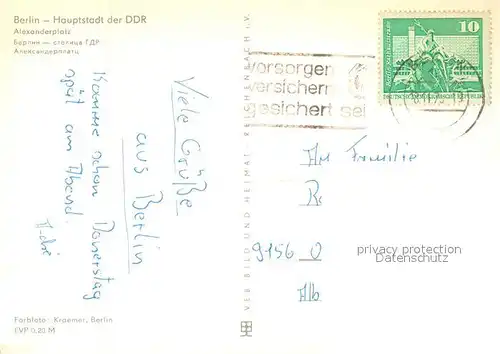 Berlin – Hauptstadt der DDR
Alexanderplatz
Берлин — столица ГДР
Александерплатц
Viele Grüße
aus Berlin
Komme schon Donerstag
spät am Abend.
Farbfoto: Kraemer, Berlin
EVP 0,20 M
VEB BILD UND HEIMAT REICHENBACH i. V.
vorsorgen
versichern
gesichert sei
10
An Familie
R
9156 O
Alb
privacy protection
Datenschutz